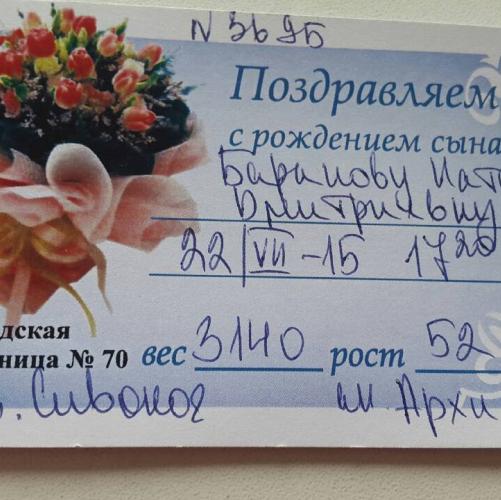 N 3695
Поздравляем
с рождением сына
Баранову Ната
Дмитриевну
22/VII-15 17 20
дская
ница № 70 вес 3140 рост 52
. Сивоног ак. Архи